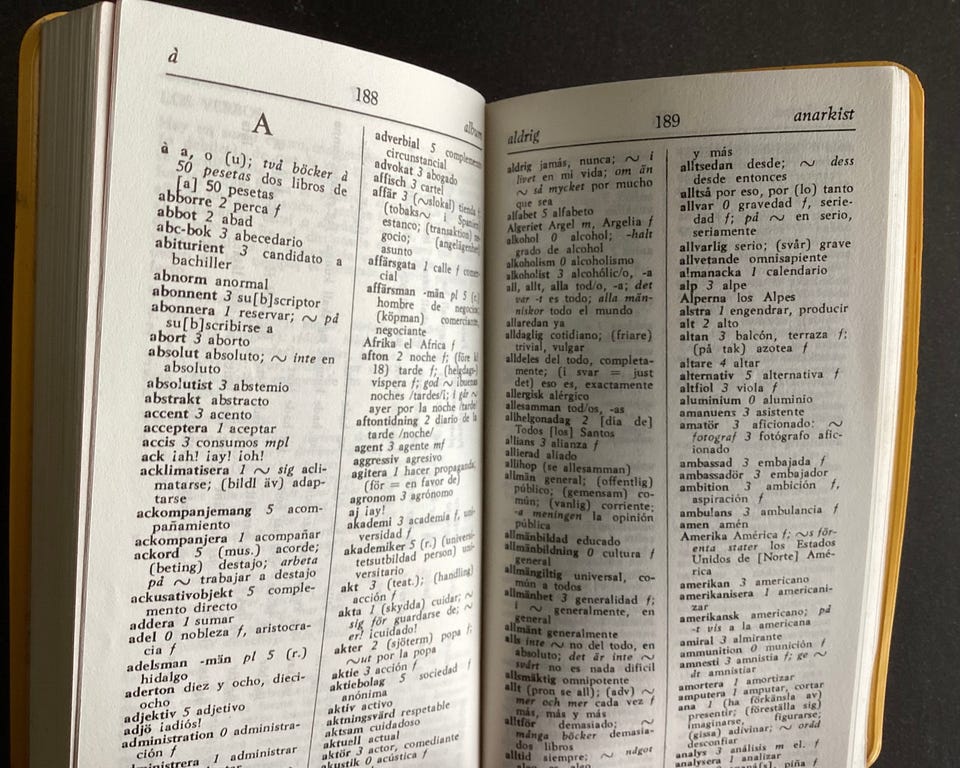 à
188
album
A
à a, o (u); två böcker à
50 pesetas dos libros de
[a] 50 pesetas
abborre 2 perca f
abbot 2 abad
abc-bok 3 abecedario
abiturient 3 candidato a
bachiller
abnorm anormal
abonnent 3 su[b]scriptor
abonnera 1 reservar; ~ på
su[b]scribirse a
abort 3 aborto
absolut absoluto; ~ inte en
absoluto
absolutist 3 abstemio
abstrakt abstracto
accent 3 acento
acceptera 1 aceptar
accis 3 consumos mpl
ack ¡ah! ¡ay! ¡oh!
acklimatisera 1 ~ sig acli-
matarse; (bildl äv) adap-
tarse
ackompanjemang 5 acom-
pañamiento
ackompanjera 1 acompañar
ackord 5 (mus.) acorde;
(beting) destajo; arbeta
på ~ trabajar a destajo
ackusativobjekt 5 comple-
mento directo
addera 1 sumar
adel 0 nobleza f, aristocra-
cia f
adelsman -män pl 5 (r.)
hidalgo
aderton diez y ocho, dieci-
ocho
adjektiv 5 adjetivo
adjö ¡adiós!
administration 0 administra-
ción f
administrera 1 administrar
adverbial 5 complemento
circunstancial
advokat 3 abogado
affisch 3 cartel
affär 3 (~slokal) tienda f
(tobaks~ i Spanien)
estanco; (transaktion) ne-
gocio; (angelägenhet)
asunto
affärsgata 1 calle f comer-
cial
affärsman -män pl 5 (r.)
hombre de negocios
(köpman) comerciante,
negociante
Afrika el Africa f
afton 2 noche f; (före kl
18) tarde f; (helgdags-)
víspera f; god ~ ¡buenas
noches /tardes/!; i går ~
ayer por la noche /tarde/
aftontidning 2 diario de la
tarde /noche/
agent 3 agente mf
aggressiv agresivo
agitera 1 hacer propaganda
(för = en favor de)
agronom 3 agrónomo
aj ¡ay!
akademi 3 academia f, uni-
versidad f
akademiker 5 (r.) (univers-
tetsutbildad person) uni-
versitario
akt 3 (teat.); (handling)
acción f
akta 1 (skydda) cuidar; ~
sig för guardarse de; ~
er! ¡cuidado!
akter 2 (sjöterm) popa f;
~ut por la popa
aktie 3 acción f
aktiebolag 5 sociedad f
anónima
aktiv activo
aktningsvärd respetable
aktsam cuidadoso
aktuell actual
aktör 3 actor, comediante
akustik 0 acústica f
aldrig
189
anarkist
aldrig jamás, nunca; ~ i
livet en mi vida; om än
~ så mycket por mucho
que sea
alfabet 5 alfabeto
Algeriet Argel m, Argelia f
alkohol 0 alcohol; -halt
grado de alcohol
alkoholism 0 alcoholismo
alkoholist 3 alcohólic/o, -a
all, allt, alla tod/o, -a; det
var -t es todo; alla män-
niskor todo el mundo
allaredan ya
alldaglig cotidiano; (friare)
trivial, vulgar
alldeles del todo, completa-
mente; (i svar = just
det) eso es, exactamente
allergisk alérgico
allesamman tod/os, -as
allhelgonadag 2 [día de]
Todos [los] Santos
allians 3 alianza f
allierad aliado
allihop (se allesamman)
allmän general; (offentlig)
público; (gemensam) co-
mún; (vanlig) corriente;
-a meningen la opinión
pública
allmänbildad educado
allmänbildning 0 cultura f
general
allmängiltig universal, co-
mún a todos
allmänhet 3 generalidad f;
i ~ generalmente, en
general
allmänt generalmente
alls inte ~ no del todo, en
absoluto; det är inte ~
svårt no es nada difícil
allsmäktig omnipotente
allt (pron se all); (adv) ~
mer och mer cada vez f
más, más y más
alltför demasiado; ~
många böcker demasia-
dos libros
alltid siempre; ~ något
y más
alltsedan desde; ~ dess
desde entonces
alltså por eso, por (lo) tanto
allvar 0 gravedad f, serie-
dad f; på ~ en serio,
seriamente
allvarlig serio; (svår) grave
allvetande omnisapiente
almanacka 1 calendario
alp 3 alpe
Alperna los Alpes
alstra 1 engendrar, producir
alt 2 alto
altan 3 balcón, terraza f;
(på tak) azotea f
altare 4 altar
alternativ 5 alternativa f
altfiol 3 viola f
aluminium 0 aluminio
amanuens 3 asistente
amatör 3 aficionado: ~
fotograf 3 fotógrafo afic-
ionado
ambassad 3 embajada f
ambassadör 3 embajador
ambition 3 ambición f,
aspiración f
ambulans 3 ambulancia f
amen amén
Amerika América f; ~s för-
enta stater los Estados
Unidos de [Norte] Amé-
rica
amerikan 3 americano
amerikanisera 1 americani-
zar
amerikansk americano; på
-t vis a la americana
amiral 3 almirante
ammunition 0 munición f
amnesti 3 amnistía f; ge ~
åt amnistiar
amortera 1 amortizar
amputera 1 amputar, cortar
ana 1 (ha förkänsla av)
presentir; (föreställa sig)
imaginarse, figurarse;
(gissa) adivinar; ~ oråd
desconfiar
analys 3 análisis m el. f
analysera 1 analizar